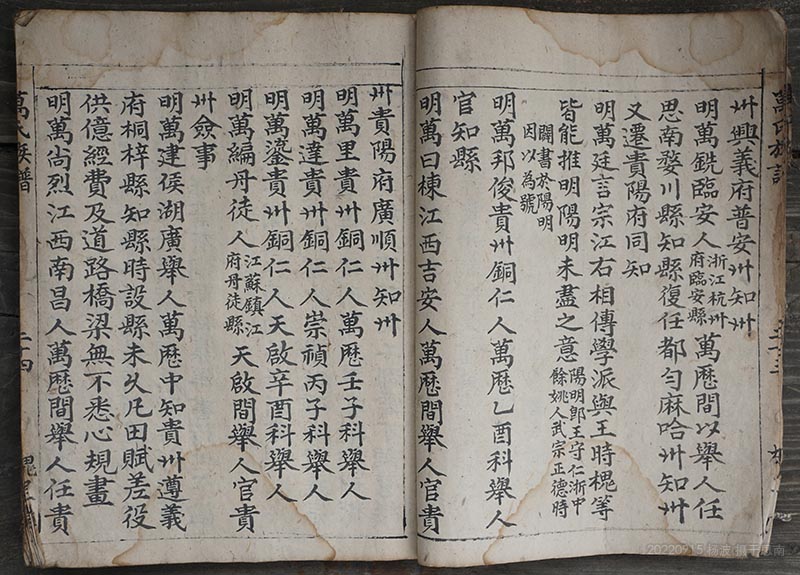 州興義府普安州知州
明萬銑臨安人浙江杭州府臨安縣萬歷間以舉人任
思南婺川縣知縣復任都勻麻哈州知州
又遷貴陽府同知
明萬廷言宗江右相傳學派與王時槐等
皆能推明陽明未盡之意陽明郎王守仁浙中餘姚人武宗正德時
闢書於陽明因以為號
明萬邦俊貴州銅仁人萬歷乙酉科舉人
官知縣
明萬曰棟江西吉安人萬歷間舉人官貴
州貴陽府廣順州知州
明萬里貴州銅仁人萬歷壬子科舉人
明萬達貴州銅仁人崇禎丙子科舉人
明萬鎏貴州銅仁人天啟辛酉科舉人
明萬編丹徒人江蘇鎮江府丹徒縣天啟間舉人官貴
州僉事
明萬建侯湖廣舉人萬歷中知貴州遵義
府桐梓縣知縣時設縣未久凡田賦差役
供億經費及道路橋梁無不悉心規畫
明萬尚烈江西南昌人萬歷間舉人任貴
萬氏族譜
二十四
20220915 杨波 摄于思南